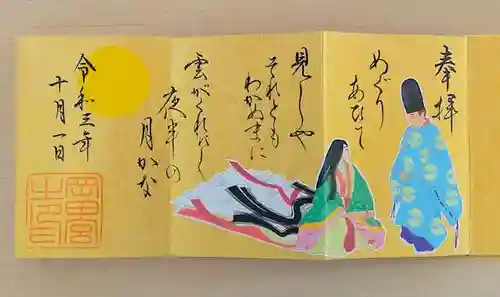 奉拝
めぐり
あひて
見しや
それとも
わかぬまに
雲がくれにし
夜半の
月かな
令和三年
十月一日
岡田宮